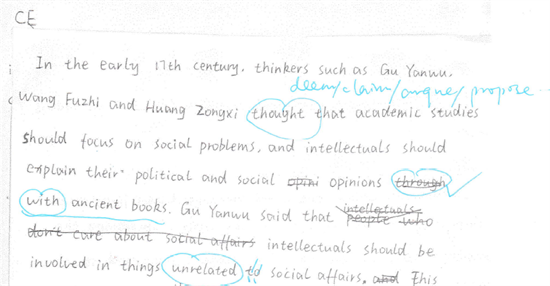 CE
In the early 17th century. thinkers such as Gu Yanwu,
deem/claim/argue/propose...
Wang Fuzhi and Huang Zongxi thought that academic studies
should focus on social problems, and intellectuals should
explain their political and social opini opinions through
with ancient books. Gu Yanwu said that people who
intellectuals
don't care about social affairs intellectuals should be
involved in things unrelated to social affairs, and This